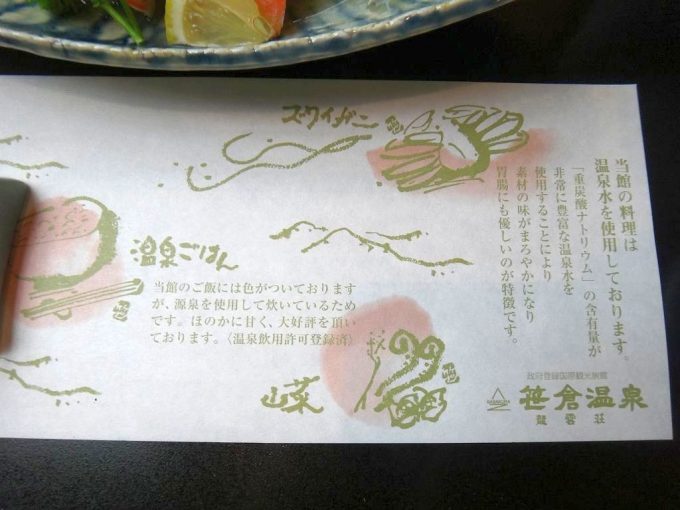 当館の料理は
温泉水を使用しております。
「重炭酸ナトリウム」の含有量が
非常に豊富な温泉水を
使用することにより
素材の味がまろやかになり
胃腸にも優しいのが特徴です。
ズワイガニ
温泉ごはん
当館のご飯には色がついております
が、源泉を使用して炊いているため
です。ほのかに甘く、大好評を頂い
ております。〈温泉飲用許可登録済〉
山菜
政府登録国際観光旅館
笹倉温泉
龍雲荘